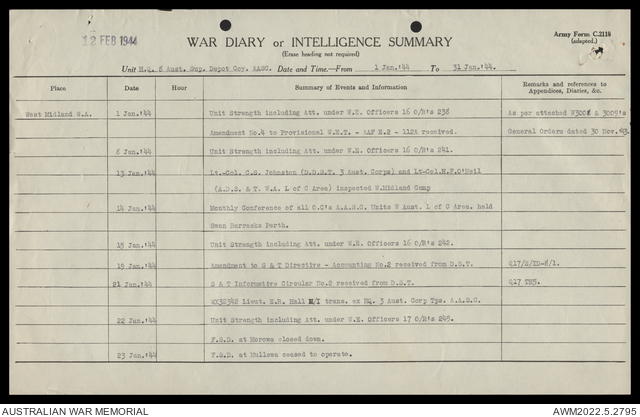 12 FEB 1944
WAR DIARY or INTELLIGENCE SUMMARY
(Erase heading not required)
Army Form C.2118
(adapted.)
Unit H.Q. 5 Aust. Sup. Depot Coy. AASC. Date and Time.—From 1 Jan.'44 To 31 Jan.'44.
Place Date Hour Summary of Events and Information Remarks and references to Appendices, Diaries, &c.
West Midland W.A. 1 Jan.'44 Unit Strength including Att. under W.E. Officers 16 O/R's 238 As per attached W3008 & 3009's
Amendment No.4 to Provisional W.E.T. - AAF E.2 - 112A received. General Orders dated 30 Nov.'43.
8 Jan.'44 Unit Strength including Att. under W.E. Officers 16 O/R's 241.
13 Jan.'44 Lt.-Col. C.S. Johnston (D.D.S.T. 3 Aust. Corps) and Lt-Col.H.F.O'Neil
(A.D.S. & T. W.A. L of C Area) inspected W.Midland Camp
14 Jan.'44 Monthly Conference of all O.C's A.A.S.C. Units W Aust. L of C Area. held
Swan Barracks Perth.
15 Jan.'44 Unit Strength including Att. under W.E. Officers 16 O/R's 242.
19 Jan.'44 Amendment to S & T Directive - Accounting No.2 received from D.S.T. Q17/S/TD-8/1.
21 Jan.'44 S & T Informative Circular No.2 received from D.S.T. Q17
WX32342 Lieut. E.R. Hall M/I trans. ex HQ. 3 Aust. Corp Tps. A.A.S.C.
22 Jan.'44 Unit Strength including Att. under W.E. Officers 17 O/R's 245.
F.S.D. at Morowa closed down.
23 Jan.'44 F.S.D. at Mullewa ceased to operate.
AUSTRALIAN WAR MEMORIAL
AWM2022.5.2795